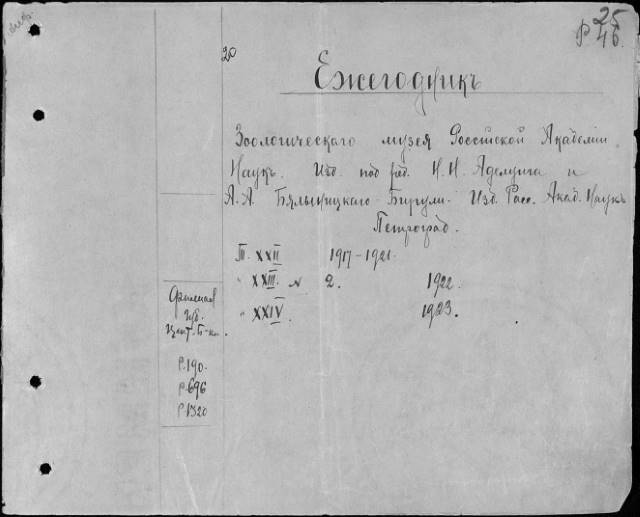 25
Р 46.
20
Ежегодникъ
Зоологическаго музея Россійской Академіи
Наукъ. Изд. под ред. Н. Н. Аделунга и
А. А Бялыницкаго-Бирули. Изд. Росс. Акад. Наукъ
Петроград.
Т. XXII 1917-1921.
" XXIII. N 2. 1922.
" XXIV. 1923.
Изд.
Цент. Б-ки.
Р.190.
Р 696
Р.1320